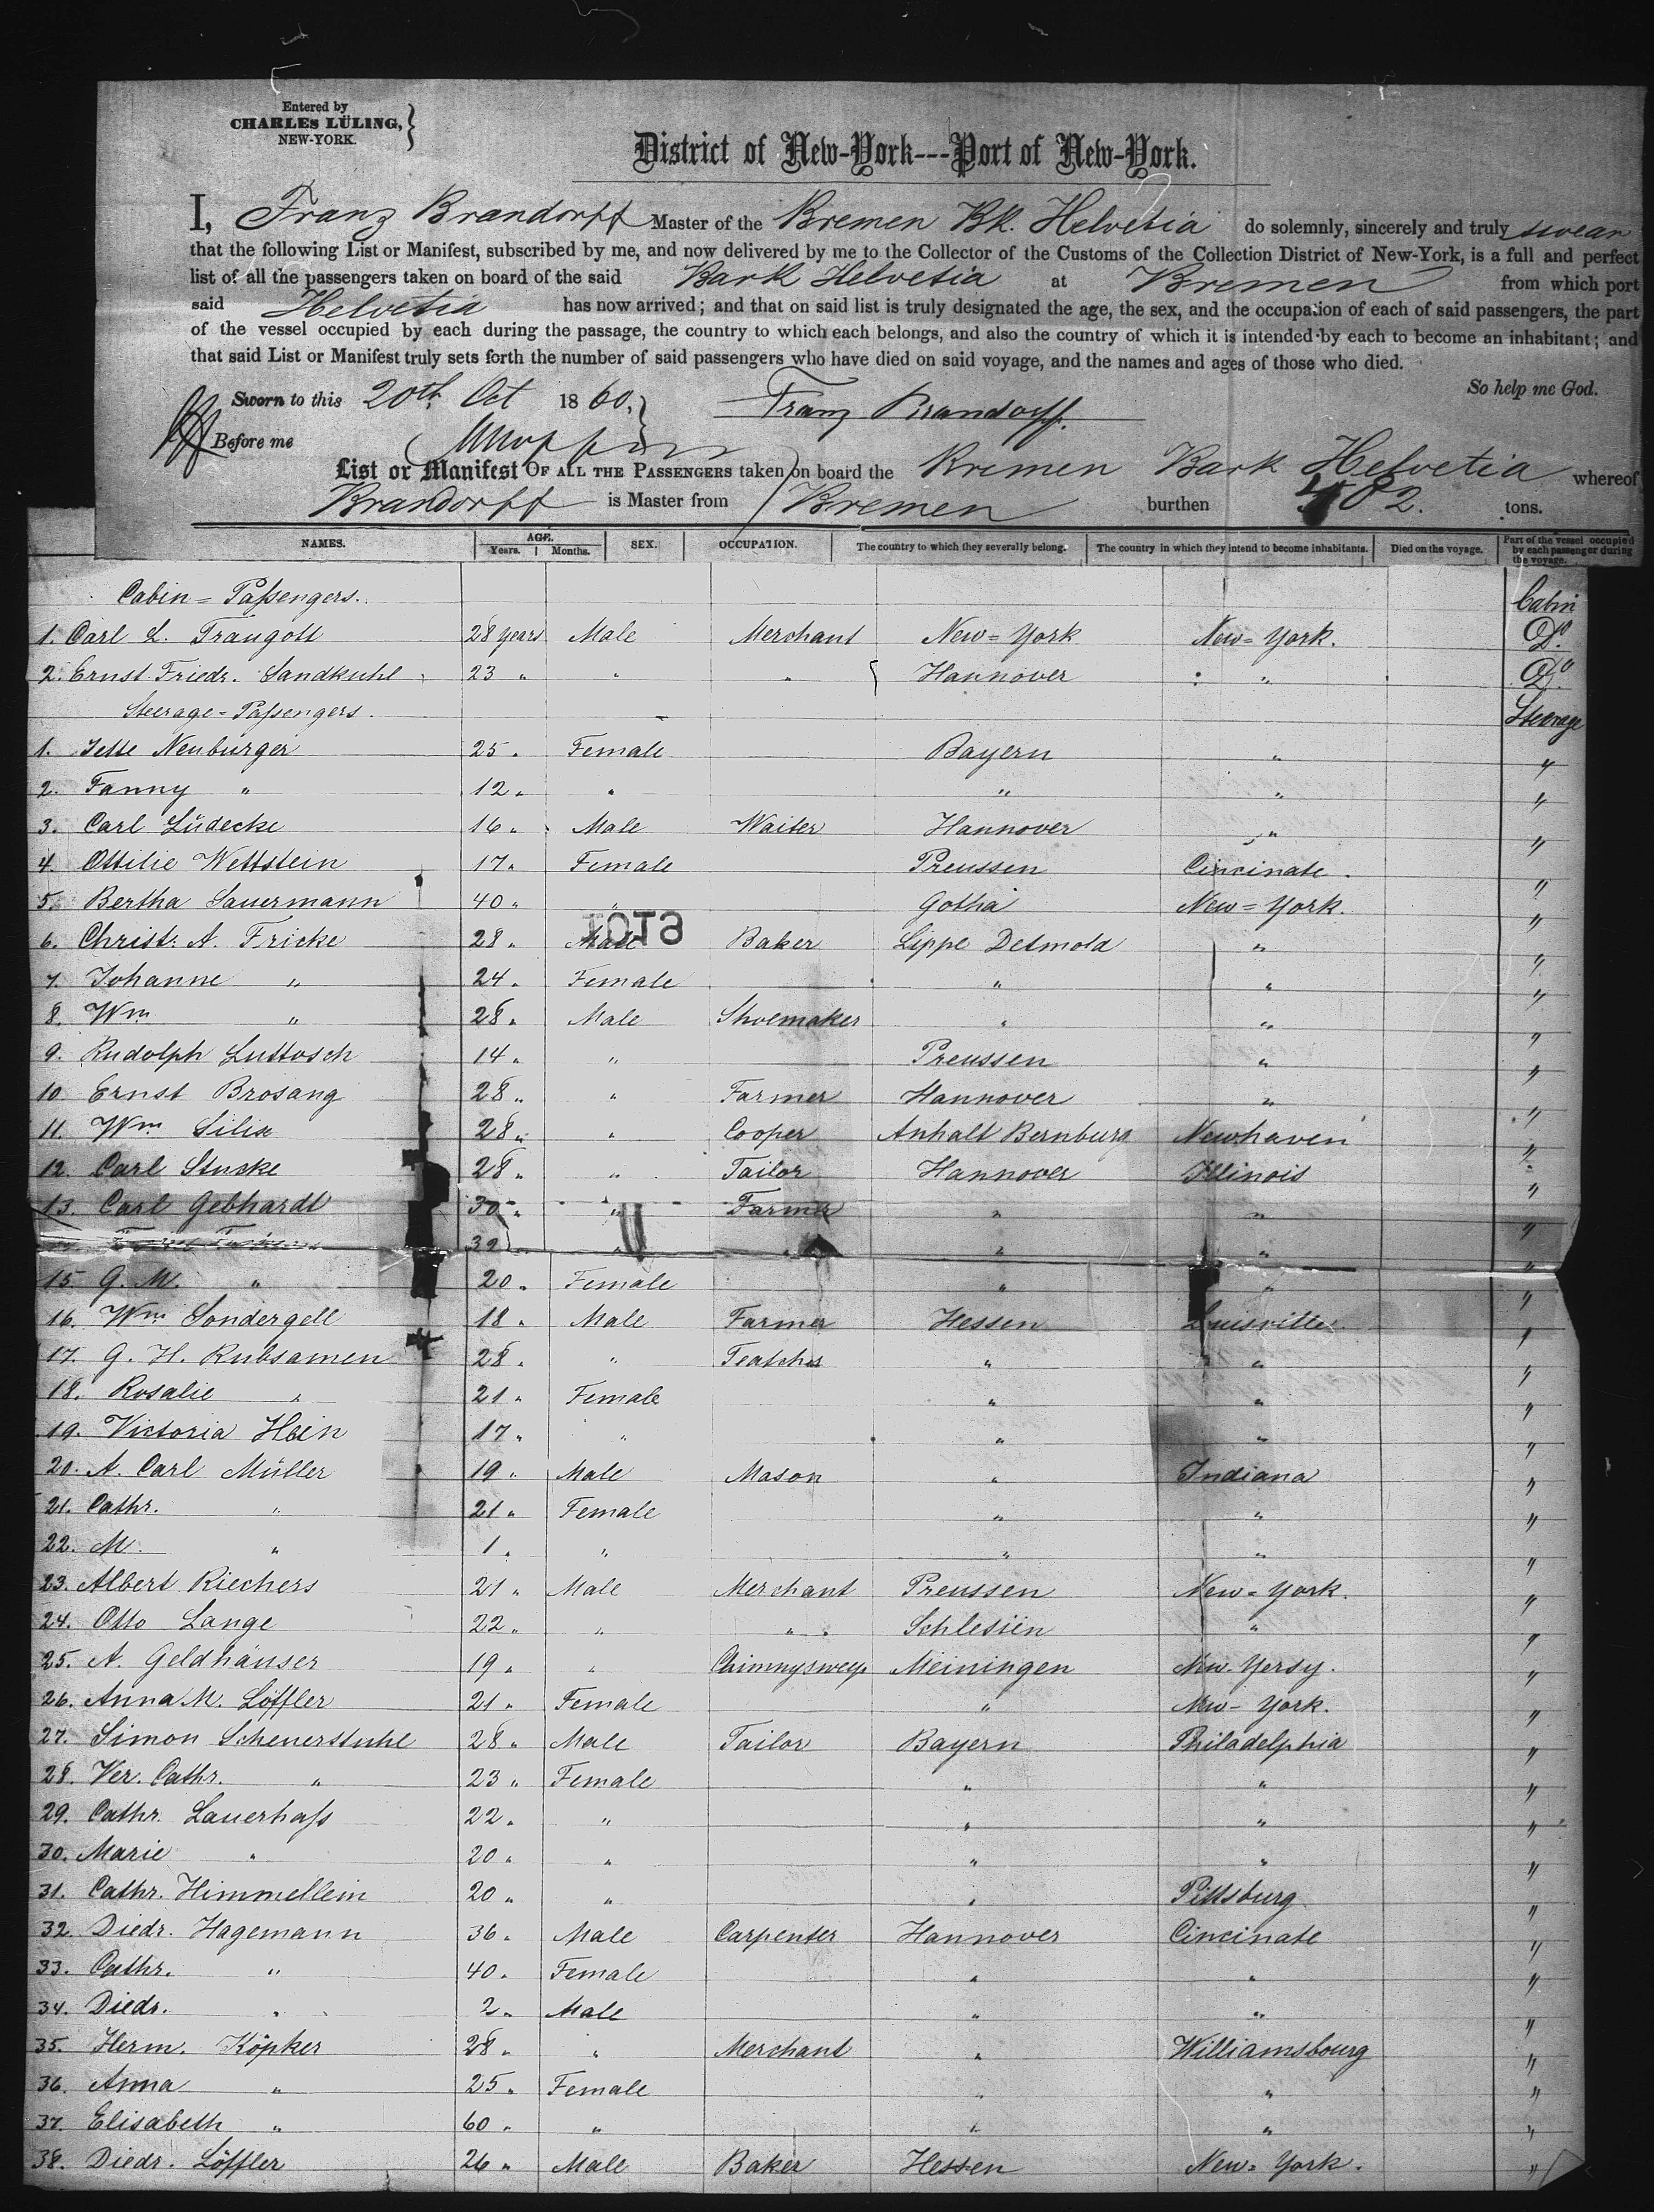 Entered by
CHARLES LÜLING,
NEW-YORK.
District of New-York---Port of New-York.
I, Franz Brandorff Master of the Bremen Bk. Helvetia do solemnly, sincerely and truly swear
that the following List or Manifest, subscribed by me, and now delivered by me to the Collector of the Customs of the Collection District of New-York, is a full and perfect
list of all the passengers taken on board of the said Bark Helvetia at Bremen from which port
said Helvetia has now arrived; and that on said list is truly designated the age, the sex, and the occupation of each of said passengers, the part
of the vessel occupied by each during the passage, the country to which each belongs, and also the country of which it is intended by each to become an inhabitant; and
that said List or Manifest truly sets forth the number of said passengers who have died on said voyage, and the names and ages of those who died.
So help me God.
Sworn to this 20th Oct 1860, Franz Brandorff.
Before me
List or Manifest OF ALL THE PASSENGERS taken on board the Bremen Bark Helvetia whereof
Brandorff is Master from Bremen burthen tons.
NAMES. AGE. Years. Months. SEX. OCCUPATION. The country to which they severally belong. The country in which they intend to become inhabitants. Died on the voyage. Part of the vessel occupied by each passenger during the voyage.
Cabin = Passengers. Cabin
1. Carl L. Traugott 28 years Male Merchant New=York New=York. Do.
2. Ernst Friedr. Sandkuhl 23 " " " Hannover " Do.
Steerage=Passengers. Steerage
1. Jette Neuburger 25 " Female Bayern " "
2. Fanny " 12 " " " " "
3. Carl Lüdecke 16 " Male Waiter Hannover " "
4. Ottilie Wettstein 17 " Female Preussen Cincinate. "
5. Bertha Sauermann 40 " " Gotha New=York. "
6. Christ. A. Fricke 28 " Male Baker Lippe Detmold " "
7. Johanne " 24 " Female " " "
8. Wm " 28 " Male Shoemaker " " "
9. Rudolph Luttosch 14 " " Preussen " "
10. Ernst Brosang 28 " " Farmer Hannover " "
11. Wm Silix 28 " " Cooper Anhalt Bernburg Newhaven "
12. Carl Stucke 28 " " Tailor Hannover Illinois "
13. Carl Gebhardt 30 " " Farmer " " "
32 " " " " " "
15. G. M. " 20 " Female " " "
16. Wm Sondergell 18 " Male Farmer Hessen Luisville "
17. G. H. Rubsamen 28 " " Teatcher " " "
18. Rosalie " 21 " Female " " "
19. Victoria Hein 17 " " " " "
20. A. Carl Müller 19 " Male Mason " Indiana "
21. Cathr. " 21 " Female " " "
22. M. " 1 " " " " "
23. Albert Riechers 21 " Male Merchant Preussen New=York. "
24. Otto Lange 22 " " " Schlesien " "
25. A. Geldhäuser 19 " " Chimnysweep Meiningen New-Yersy. "
26. Anna M. Löffler 21 " Female " New-York. "
27. Simon Scheuerstuhl 28 " Male Tailor Bayern Philadelphia "
28. Ver. Cathr. " 23 " Female " " "
29. Cathr. Lauerhass 22 " " " " "
30. Marie " 20 " " " " "
31. Cathr. Himmellein 20 " " " Pittsburg "
32. Diedr. Hagemann 36 " Male Carpenter Hannover Cincinate "
33. Cathr. " 40 " Female " " "
34. Diedr. " 2 " Male " " "
35. Herm. Köpker 28 " " Merchant " Williamsbourg "
36. Anna " 25 " Female " " "
37. Elisabeth " 60 " " " " "
38. Diedr. Löffler 26 " Male Baker Hessen New=York. "